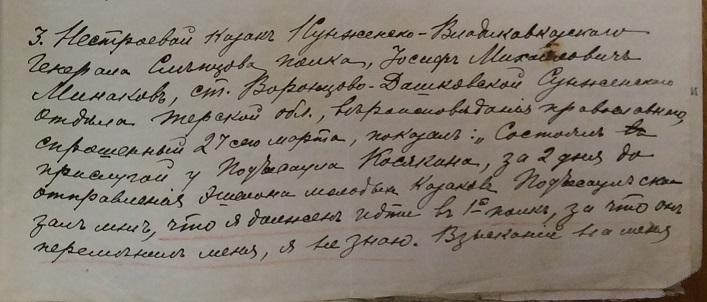 3. Нестроевой казакъ Сунженско-Владикавказскаго
Генерала Слѣпцова полка, Іосифъ Михайловичъ
Минаковъ, ст. Воронцово-Дашковской Сунженскаго
отдѣла Терской обл., вѣроисповѣданія православнаго,
спрошенный 27 сего марта, показалъ: „Состоялъ въ
прислугой у Подъесаула Косякина, за 2 дня до
отправленія эшелона молодыхъ казаковъ Подъесаулъ ска-
залъ мнѣ, что я долженъ идти въ 1й полкъ, за что онъ
перемѣнилъ меня, я не знаю. Взысканій на меня